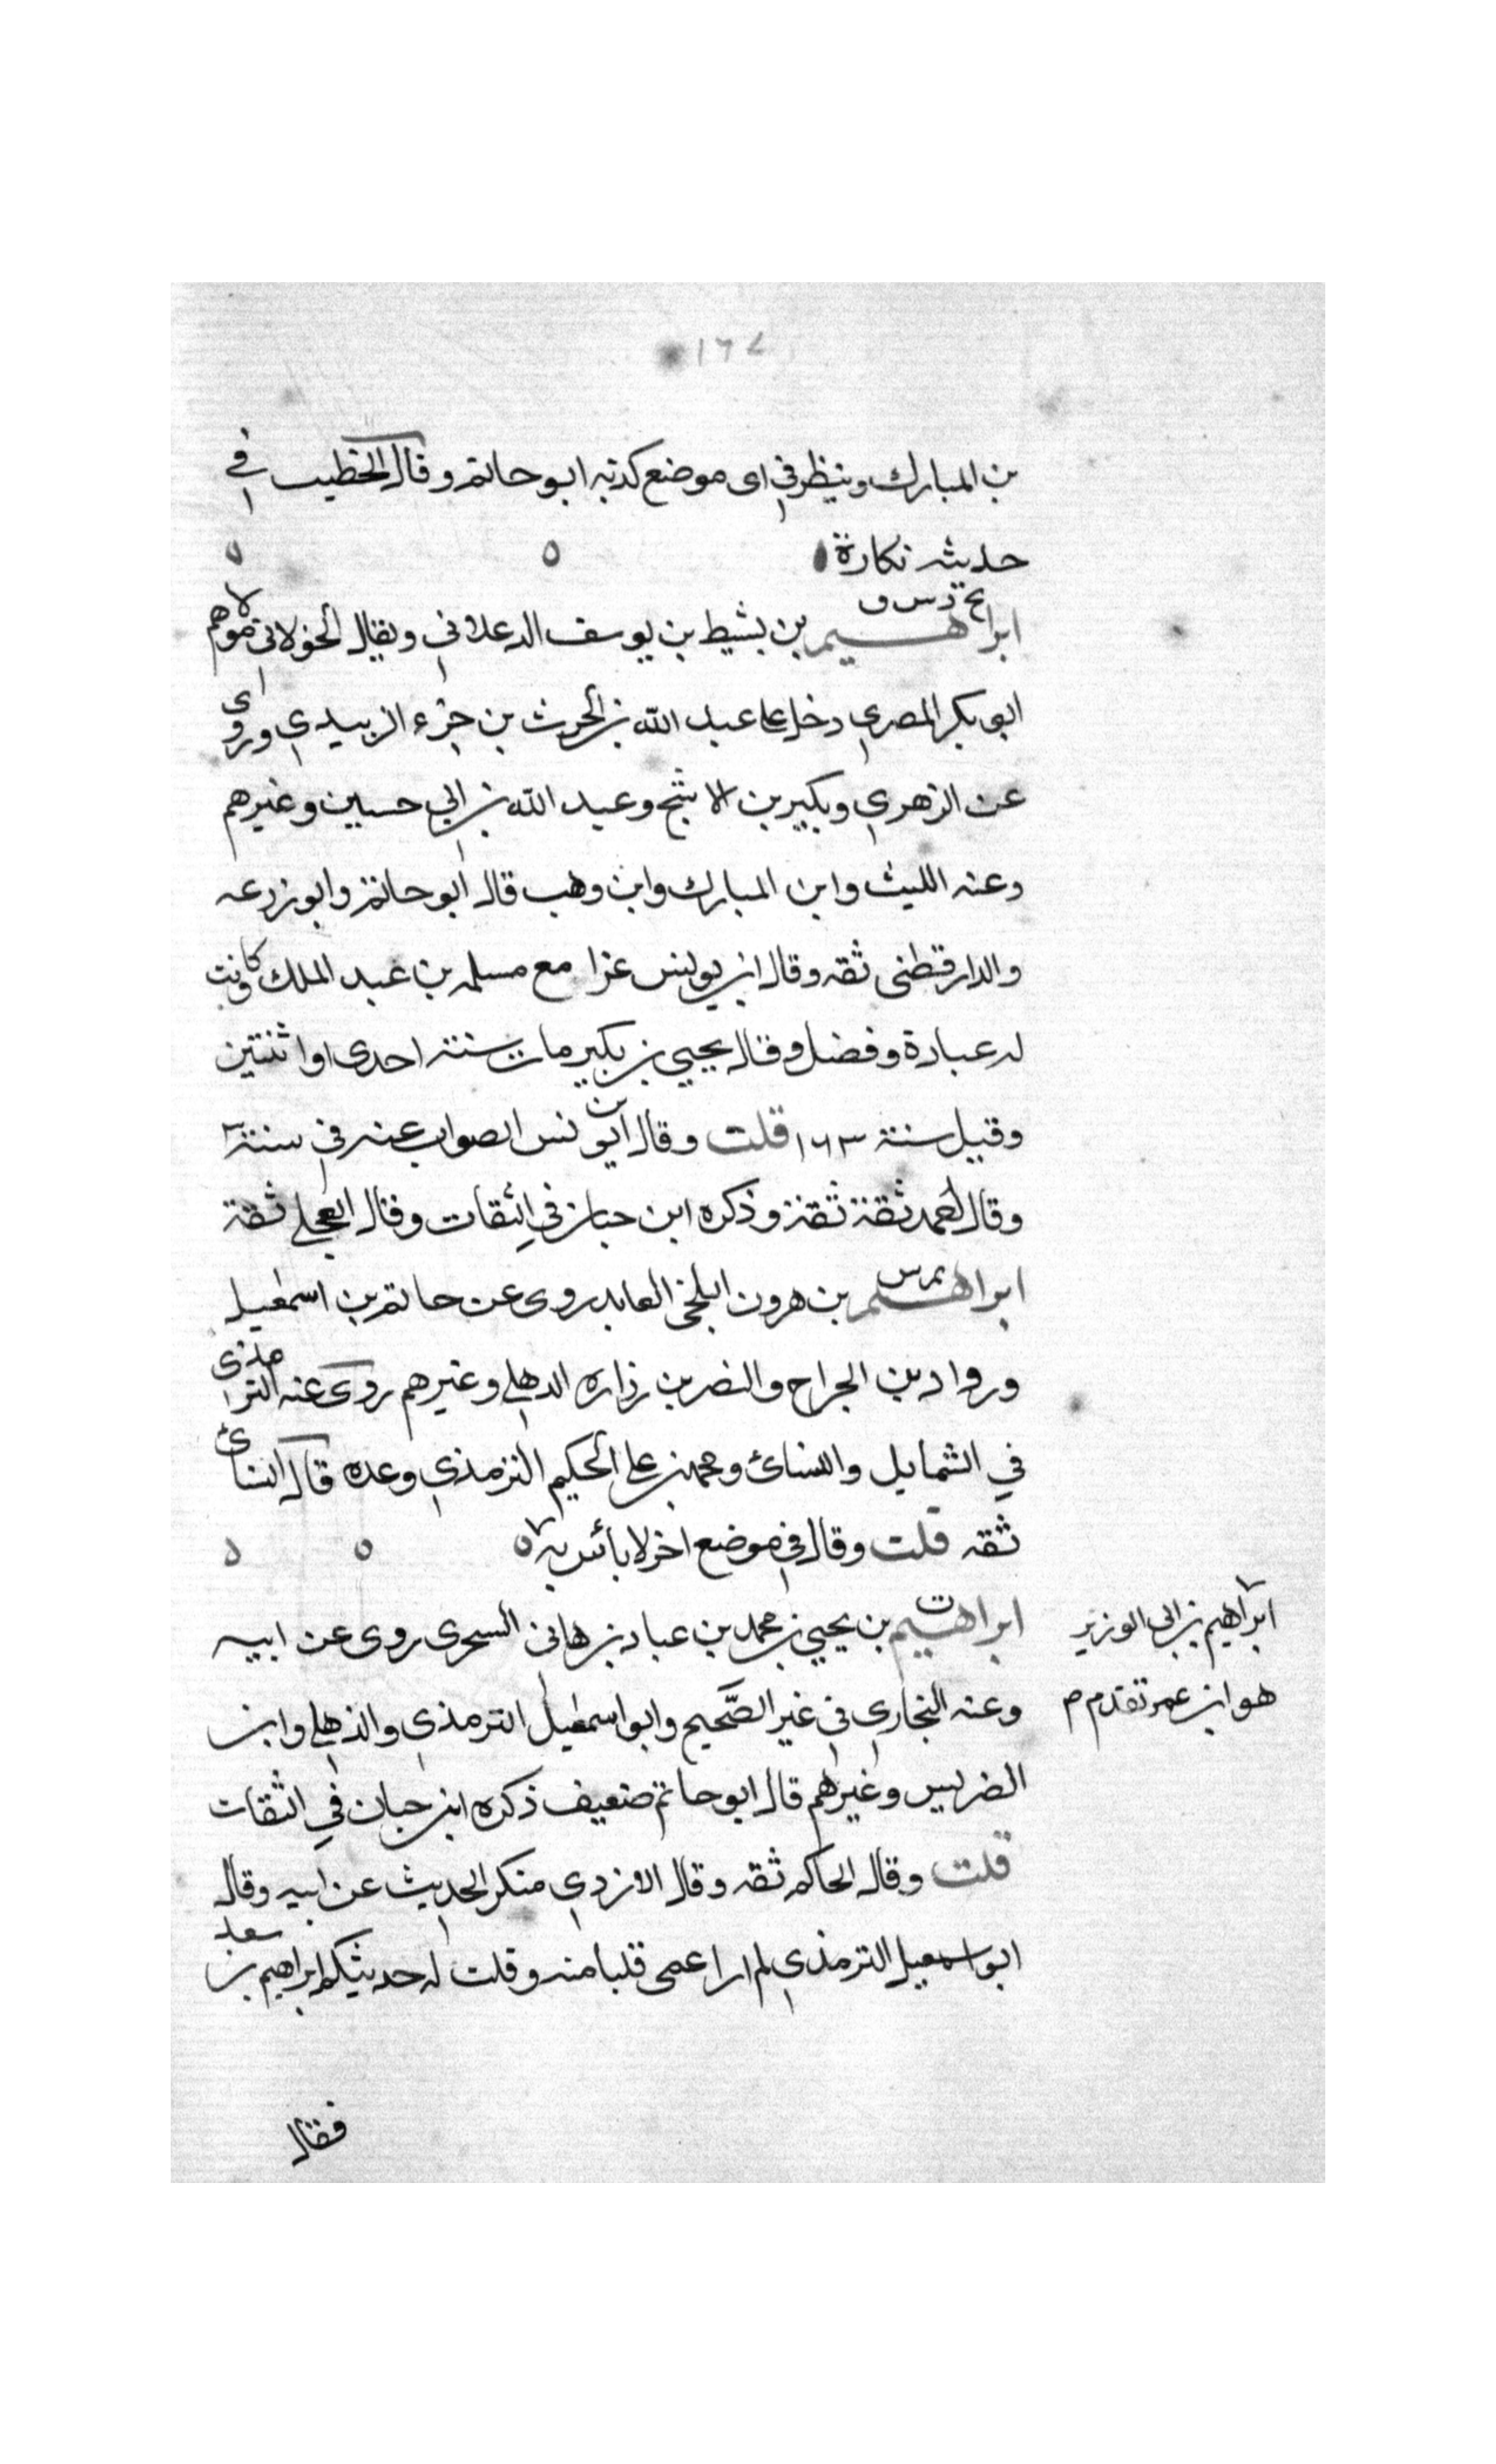 ١٦٧
بن المبارك وينظر في اى موضع كذبه ابو حاتم وقال الخطيب في
حديثه نكارة
بخ د س ق
ابراهيم بن نشيط بن يوسف الدعلاني ويقال الخولاني مولاهم
ابو بكر المصري دخل على عبد الله بن الحرث بن جزء الزبيدي وروى
عن الزهري وبكير بن الاشج وعبد الله بن ابي حسين وغيرهم
وعنه الليث وابن المبارك وابن وهب قال ابو حاتم وابو زرعه
والدارقطنى ثقه وقال ابن يونس غزا مع مسلمه بن عبد الملك وكانت
له عبادة وفضل وقال يحيي بن بكير مات سنة احدى او اثنتين
وقيل سنة ١٦٣ قلت وقال ابن يونس الصواب عنه في سنة
وقال احمد ثقة ثقة وذكره ابن حبان في الثقات وقال العجلي ثقة
تم س
ابراهيم بن هرون البلخى العابد روى عن حاتم بن اسمعيل
ورواد بن الجراح والنضر بن زراره الذهلي وغيرهم روى عنه الترمذى
في الشمايل والنسائ ومحمد بن علي الحكيم الترمذي وعده قال النسائ
ثقه قلت وقال في موضع اخر لا بأس به
ت
ابراهيم بن يحيي بن محمد بن عباد بن هانئ السحرى روى عن ابيه
وعنه البخاري في غير الصحيح وابو اسمعيل الترمذي والذهلي وابن
الضريس وغيرهم قال ابو حاتم ضعيف ذكره ابن حبان في الثقات
قلت وقال الحاكم ثقه وقال الازدي منكر الحديث عن ابيه وقال
ابو اسمعيل الترمذي لم ار اعمى قلبا منه وقلت له حديثكم ابراهيم بن سعد
ابراهيم بن ابى الوزير
هو ابن عمر تقدم م
فقال